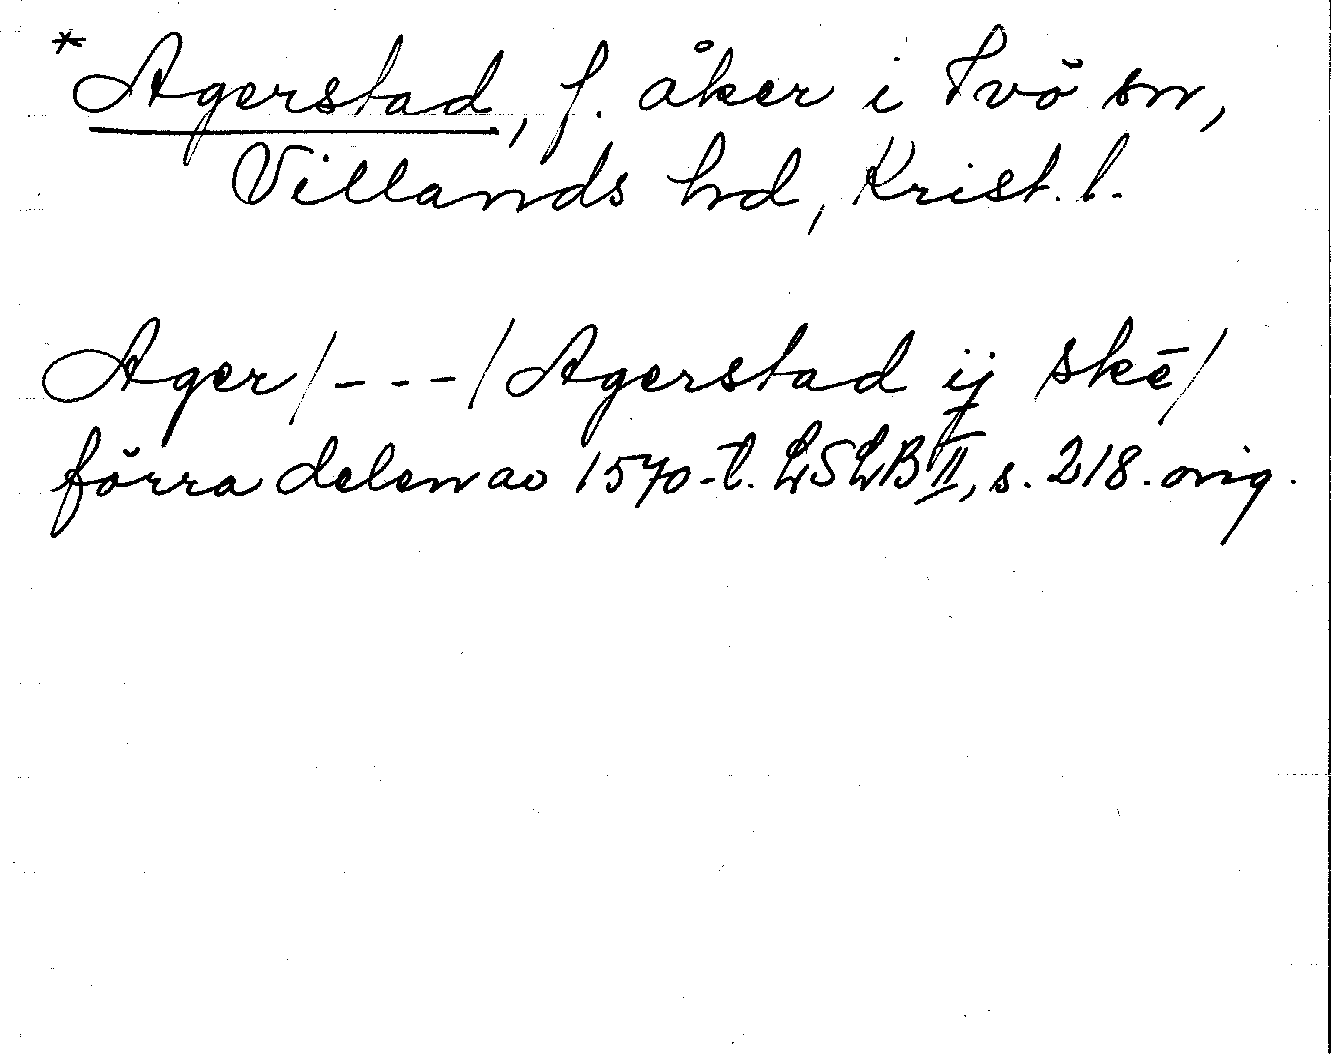 *Agerstad, f. åker i Ivö sn,
Villands hd, Krist. l.
Ager/---/Agerstad ij skē/
förra delen av 1570-t. LSLB II, s. 218. orig.